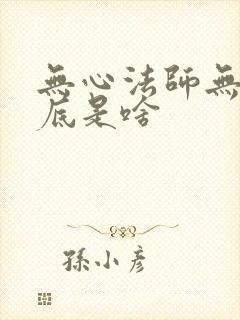 無心法師無
底是啥
孫小彥